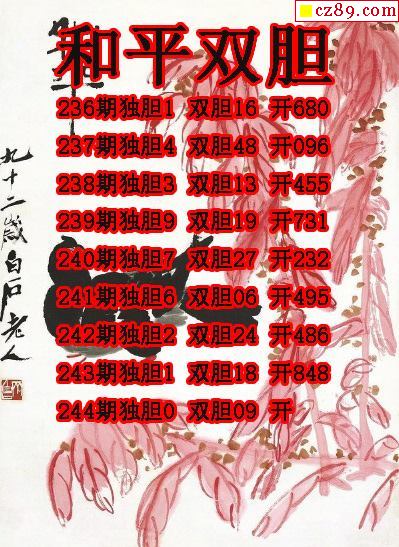 cz89.com
和平双胆
236期独胆1 双胆16 开680
237期独胆4 双胆48 开096
238期独胆3 双胆13 开455
239期独胆9 双胆19 开731
240期独胆7 双胆27 开232
241期独胆6 双胆06 开495
242期独胆2 双胆24 开486
243期独胆1 双胆18 开848
244期独胆0 双胆09 开
九十二岁白石老人